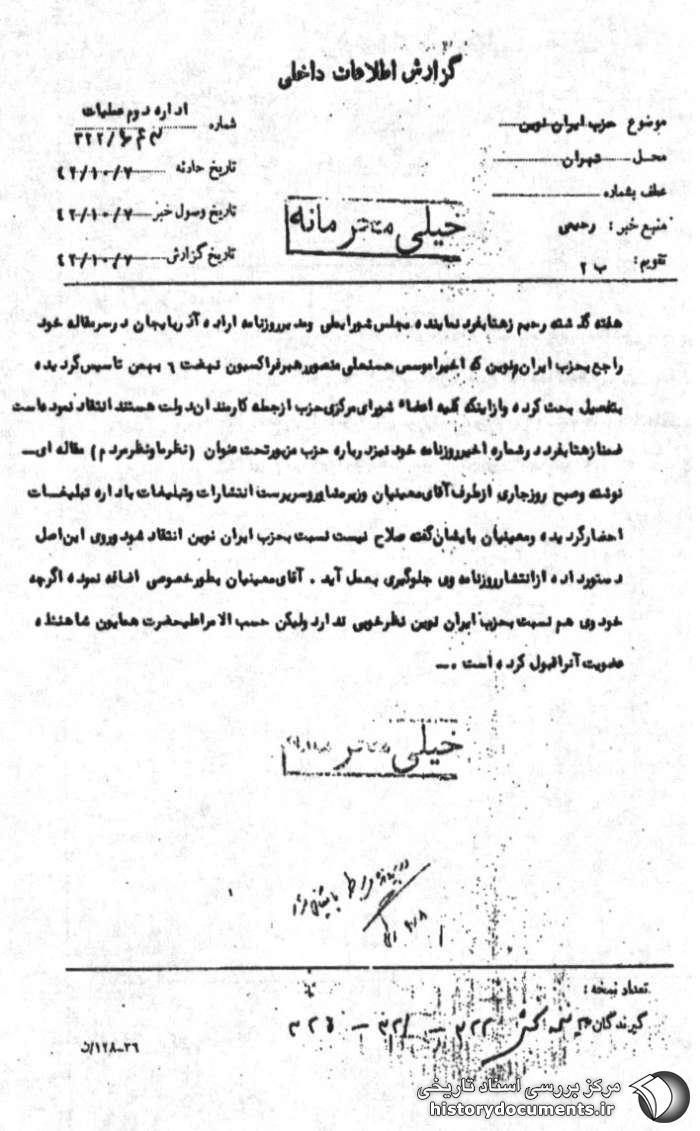 گزارش اطلاعات داخلی
موضوع حزب ایران نوین
محل تهران
عطف بشماره
منبع خبر : رحیمی
تقویم : ب ۲
اداره دوم عملیات
شماره ۳۲۲
تاریخ حادثه ۴۲/۱۰/۷
تاریخ وصول خبر ۴۲/۱۰/۷
تاریخ گزارش ۴۲/۱۰/۷
خیلی محرمانه
هفته گذشته رحیم زهتابفرد نماینده مجلس شورایملی ومدیرروزنامه اراده آذربایجان درسرمقاله خود
راجع بحزب ایران نوین که اخیراموسس حسنعلی منصوررهبرفراکسیون نهضت ۶ بهمن تاسیس گردیده
بتفصیل بحث کرده وازاینکه کلیه اعضاء شورای مرکزی حزب ازجمله کارمندان دولت هستند انتقاد نموده است
ضمنا زهتابفرد درشماره اخیرروزنامه خود نیزدرباره حزب مزبورتحت عنوان (نظرماونظرمردم) مقاله ای
نوشته وصبح روزجاری ازطرف آقای معینیان وزیرمشاوروسرپرست انتشارات وتبلیغات باداره تبلیغات
احضارگردیده ومعینیان بایشان گفته صلاح نیست نسبت بحزب ایران نوین انتقاد شود وروی این اصل
دستورداده ازانتشارروزنامه وی جلوگیری بعمل آید . آقای معینیان بطورخصوصی اضافه نموده اگرچه
خود وی هم نسبت بحزب ایران نوین نظرخوبی ندارد ولیکن حسب الامراعلیحضرت همایون شاهنشاه
عضویت آنراقبول کرده است .ــ
خیلی محرمانه
تعداد نسخه :
گیرندگان
۱۲۸-۳۶/ن
مرکز بررسی اسناد تاریخی
historydocuments.ir